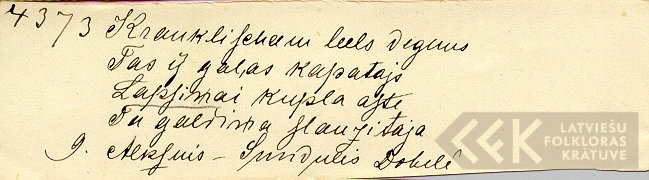 4373 Kraukļischam leels deguns
Tas ij galas kapatajs
Lapsiņai kupla aste
Ta galdiņa slauzitaja
9. Alksnis - Sundulis Dobelē
LATVIEŠU
FOLKLORAS
KRĀTUVE